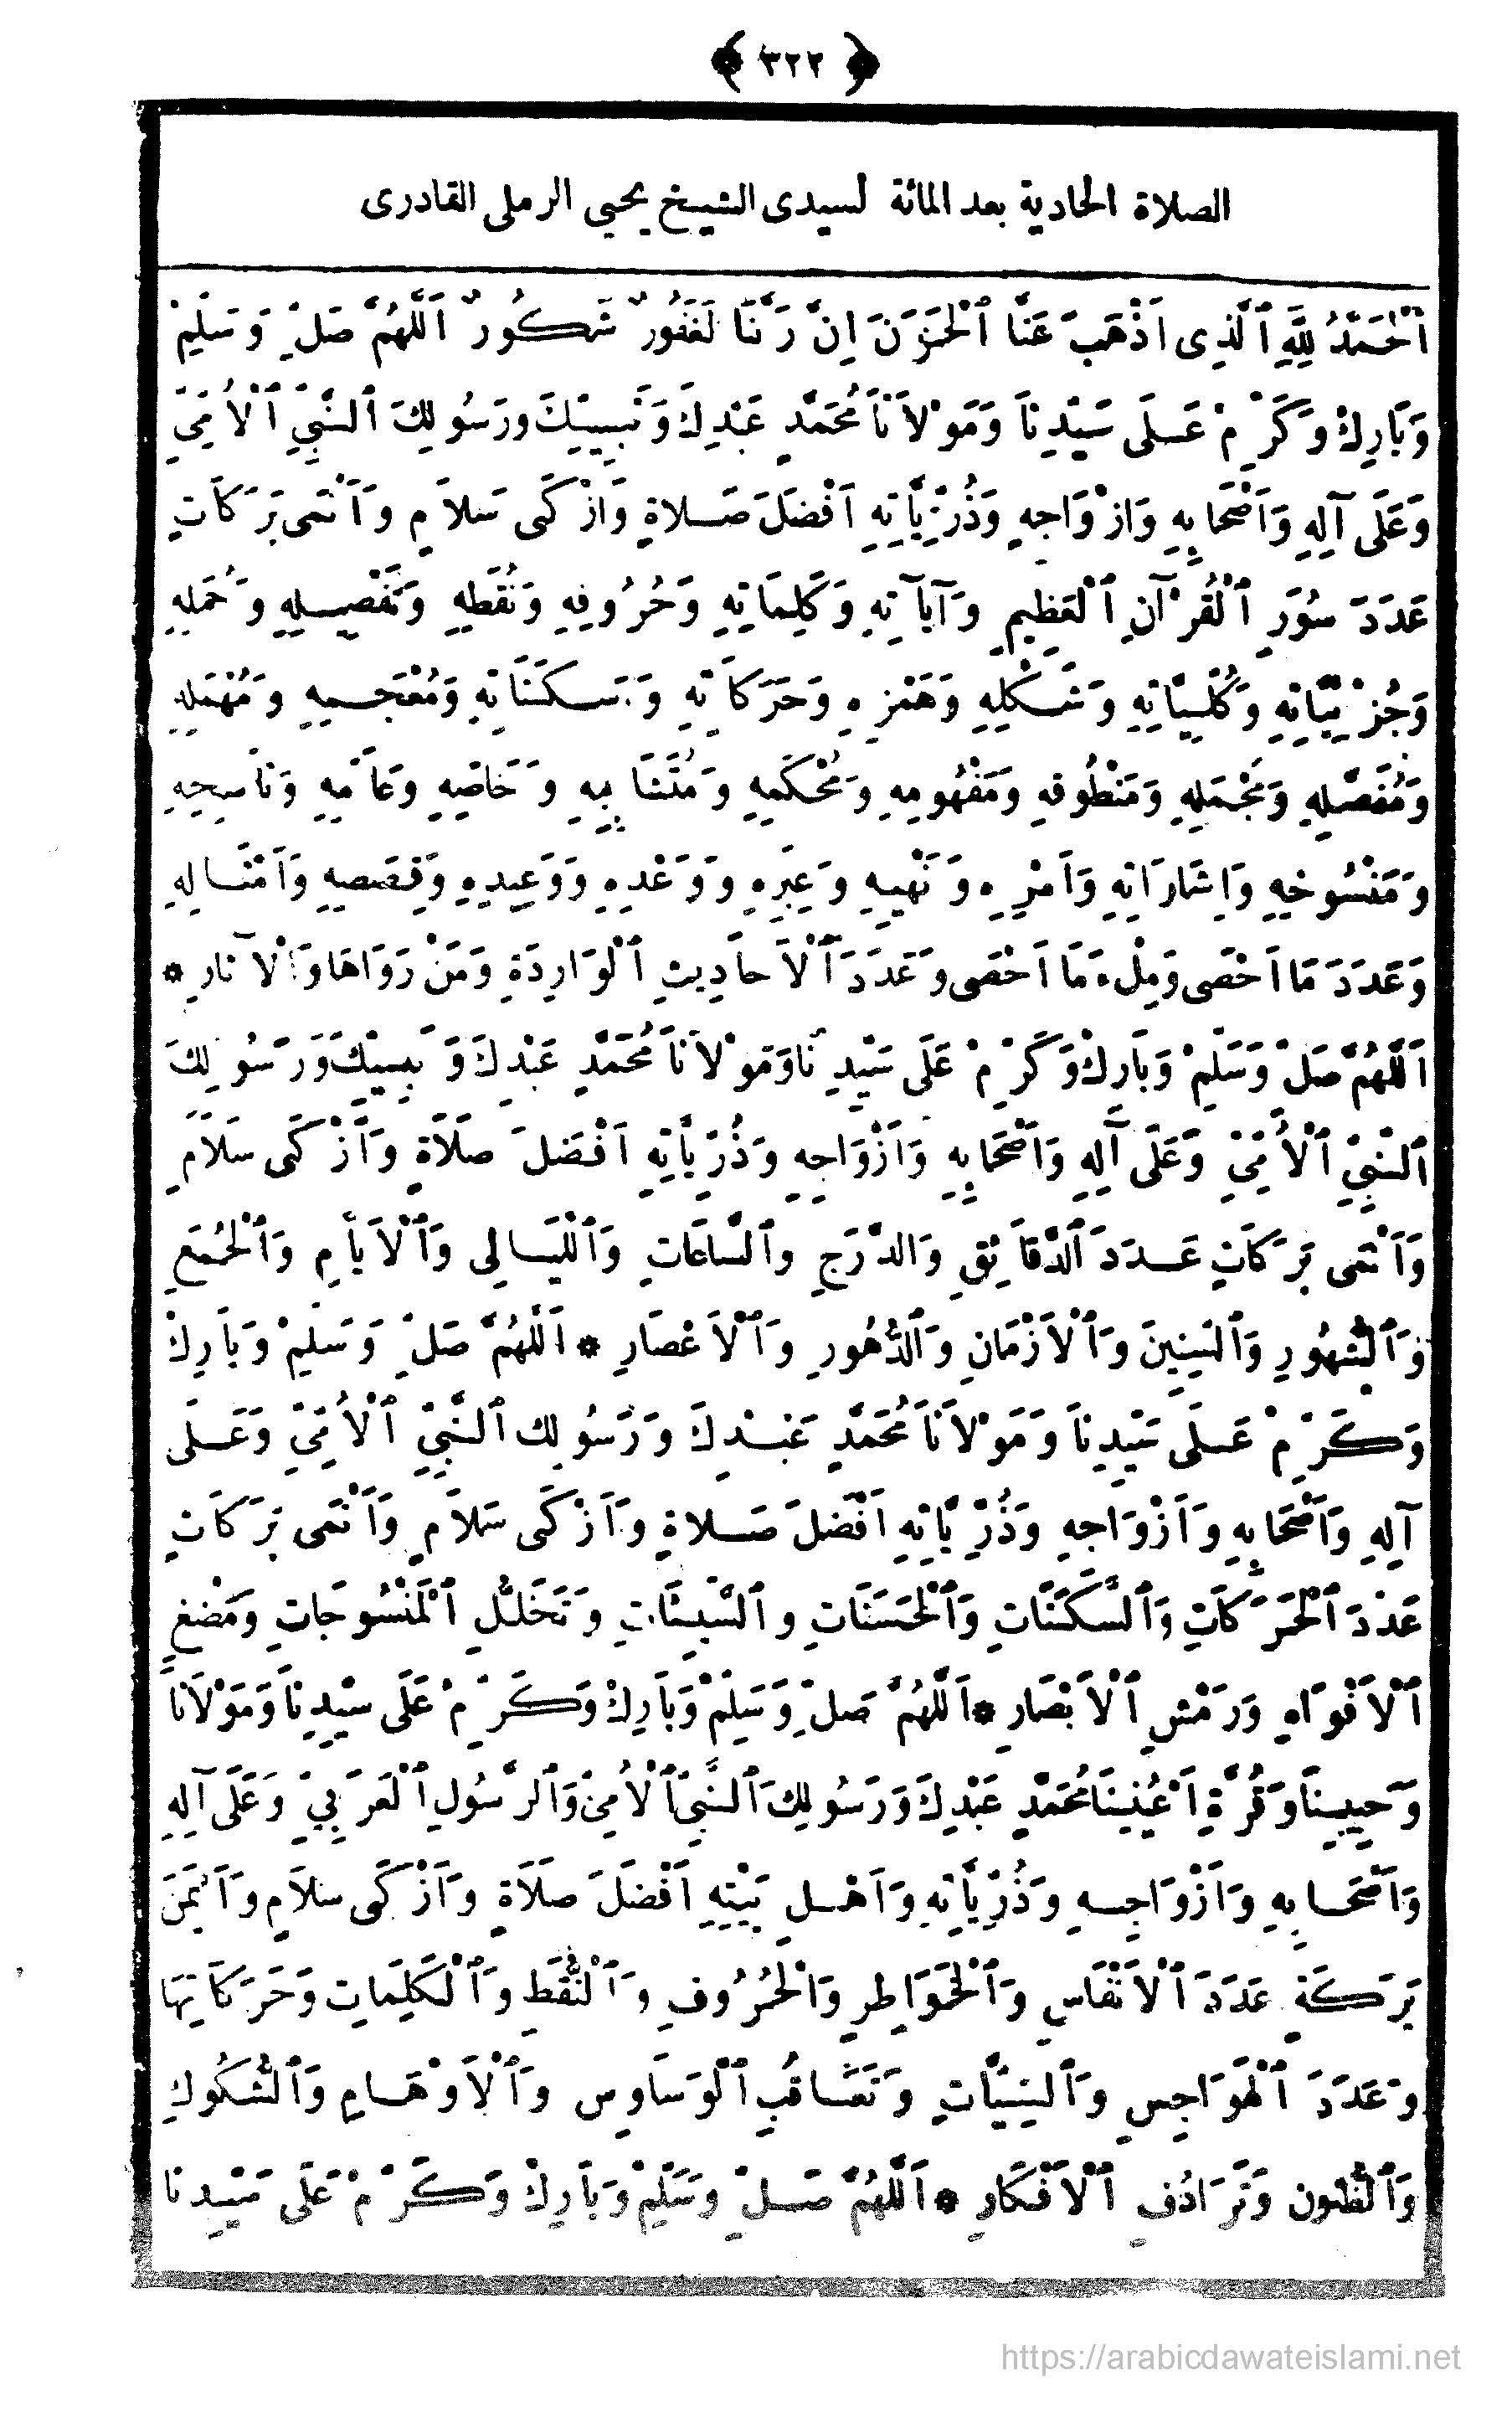 ﴿ ٣٢٢ ﴾
الصلاة الحادية بعد المائة لسيدى الشيخ يحيى الرملى القادرى
اَلْحَمْدُ لِلّٰهِ ٱلَّذِى اَذْهَبَ عَنَّا ٱلْحَزَنَ اِنَّ رَبَّنَا لَغَفُورٌ شَكُورٌ اَللّٰهُمَّ صَلِّ وَسَلِّمْ
وَبَارِكْ وَكَرِّمْ عَلَى سَيِّدِنَا وَمَوْلاَنَا مُحَمَّدٍ عَبْدِكَ وَنَبِيِّكَ وَرَسُولِكَ ٱلنَّبِيِّ ٱلْأُمِّيِّ
وَعَلَى آلِهِ وَاَصْحَابِهِ وَازْوَاجِهِ وَذُرِّيَّاتِهِ اَفْضَلَ صَلاةٍ وَازْكَى سَلاَمٍ وَاَنْمَى بَرَكَاتٍ
عَدَدَ سُوَرِ ٱلْقُرْآنِ ٱلْعَظِيمِ وَآيَاتِهِ وَكَلِمَاتِهِ وَحُرُوفِهِ وَنُقَطِهِ وَتَفْصِيلِهِ وَجُمَلِهِ
وَجُزْئِيَّاتِهِ وَكُلِّيَّاتِهِ وَشَكْلِهِ وَهَمْزِهِ وَحَرَكَاتِهِ وَسَكَنَاتِهِ وَمُعْجَمِهِ وَمُهْمَلِهِ
وَمُفَصَّلِهِ وَمُجْمَلِهِ وَمَنْطُوقِهِ وَمَفْهُومِهِ وَمُحْكَمِهِ وَمُتَشَابِهِهِ وَخَاصِّهِ وَعَامِّهِ وَنَاسِخِهِ
وَمَنْسُوخِهِ وَاِشَارَاتِهِ وَاَمْرِهِ وَنَهْيِهِ وَعِبَرِهِ وَوَعْدِهِ وَوَعِيدِهِ وَقِصَصِهِ وَاَمْثَالِهِ
وَعَدَدَ مَا اَحْصَى وَمِلْءَ مَا اَحْصَى وَعَدَدَ ٱلْاَحَادِيثِ ٱلْوَارِدَةِ وَمَنْ رَوَاهَا وَٱلْآثَارِ *
اَللّٰهُمَّ صَلِّ وَسَلِّمْ وَبَارِكْ وَكَرِّمْ عَلَى سَيِّدِنَا وَمَوْلاَنَا مُحَمَّدٍ عَبْدِكَ وَنَبِيِّكَ وَرَسُولِكَ
ٱلنَّبِيِّ ٱلْأُمِّيِّ وَعَلَى آلِهِ وَاَصْحَابِهِ وَاَزْوَاجِهِ وَذُرِّيَّاتِهِ اَفْضَلَ صَلَاةٍ وَاَزْكَى سَلَامٍ
وَاَنْمَى بَرَكَاتٍ عَدَدَ ٱلدَّقَائِقِ وَالدَّرَجِ وٱلسَّاعَاتِ وَٱللَّيَالِى وَٱلْاَيَّامِ وَٱلْجُمَعِ
وَٱلشُّهُورِ وَٱلسِّنِينَ وَٱلْاَزْمَانِ وَٱلدُّهُورِ وَٱلْاَعْصَارِ * اَللّٰهُمَّ صَلِّ وَسَلِّمْ وَبَارِكْ
وَكَرِّمْ عَلَى سَيِّدِنَا وَمَوْلاَنَا مُحَمَّدٍ عَبْدِكَ وَرَسُولِك ٱلنَّبِيِّ ٱلْأُمِّيِّ وَعَلَى
آلِهِ وَاَصْحَابِهِ وَاَزْوَاجِهِ وَذُرِّيَّاتِهِ اَفْضَلَ صَلاةٍ وَاَزْكَى سَلاَمٍ وَاَنْمَى بَرَكَاتٍ
عَدَدَ ٱلْحَرَكَاتِ وَٱلسَّكَنَاتِ وَٱلْحَسَنَاتِ وٱلسَّيِّئَاتِ وَتَخَلُّلِ ٱلْمَنْسُوجَاتِ وَمَضْغِ
ٱلْاَفْوَاهِ وَرَمْشِ ٱلْاَبْصَارِ * اَللّٰهُمَّ صَلِّ وَسَلِّمْ وَبَارِكْ وَكَرِّمْ عَلَى سَيِّدِنَا وَمَوْلَانَا
وَحَبِيبِنَا وَقُرَّةِ اَعْيُنِنَا مُحَمَّدٍ عَبْدِكَ وَرَسُولِكَ ٱلنَّبِيِّ ٱلْأُمِّيِّ وَٱلرَّسُولِ ٱلْعَرَبِيِّ وَعَلَى آلِهِ
وَاَصْحَابِهِ وَاَزْوَاجِهِ وَذُرِّيَّاتِهِ وَاَهْلِ بَيْتِهِ اَفْضَلَ صَلَاةٍ وَاَزْكَى سَلاَمٍ وَاَيْمَنَ
بَرَكَةٍ عَدَدَ ٱلْاَنْفَاسِ وَٱلْخَوَاطِرِ وَالْحُرُوفِ وَٱلنُّقَطِ وَٱلْكَلِمَاتِ وَحَرَكَاتِهَا
وَعَدَدَ ٱلْهَوَاجِسِ وَٱلنِّيَّاتِ وَتَعَاقُبِ ٱلْوَسَاوِسِ وَٱلْاَوْهَامِ وَٱلشُّكُوكِ
وَٱلظُّنُونِ وَتَرَادُفِ ٱلْاَفْكَارِ * اَللّٰهُمَّ صَلِّ وَسَلِّمْ وَبَارِكْ وَكَرِّمْ عَلَى سَيِّدِنَا
https://arabicdawateislami.net